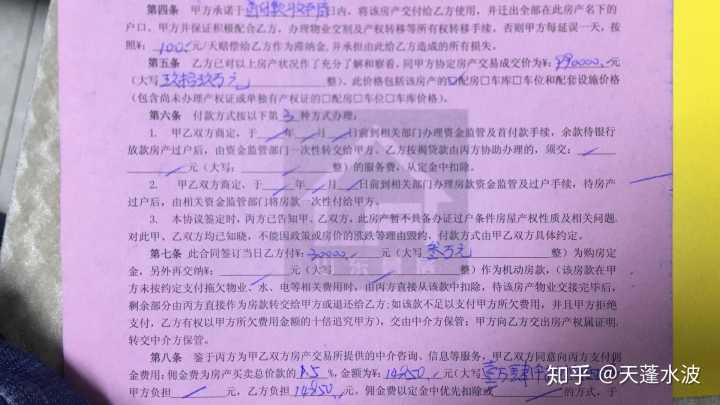 第四条 甲方承诺于首付款收齐后日内，将该房产交付给乙方使用，并迁出全部在此房产名下的
户口。甲方并保证积极配合乙方，办理物业交割及产权转移等所有权转移手续，否则甲方每延误一天，按
照¥：100元/天赔偿给乙方作为滞纳金，并承担由此给乙方造成的所有损失。
第五条 乙方已对以上房产状况作了充分了解和察看。同甲方协定房产交易成交价为¥：990000元
（大写 玖拾玖万元 整）、此价格包括该房产的☑配房□车库□车位和配套设施价格
（包含尚未办理产权证或单独有产权证的□配房□车位□车库价格）。
第六条 付款方式按以下第 3 种方式办理：
1. 甲乙双方商定，于 年 月 日前到相关部门办理资金监管及首付款手续，余款待银行
放款房产过户后，由资金监管部门一次性转交给甲方。乙方按揭贷款由丙方协助办理的，须交：
元（大写： 整）的服务费，从定金中扣除。
2. 甲乙双方商定，于 年 月 日前到相关部门办理房款资金监管及过户手续，待房产
过户后，由相关资金监管部门将房款一次性付给甲方。
3. 本协议签定时，丙方已告知甲、乙双方，此房产暂不具备办证过户条件房屋产权性质及相关问题。
对此甲、乙双方均已知晓，不能因政策或房价的涨跌等理由毁约，付款方式由甲乙双方具体约定。
第七条 此合同签订当日乙方付¥：30000元（大写 叁万元 整）为购房定
金，另外再交纳¥： 元（大写 整）作为机动房款，（该房款在甲
方未按约定支付拖欠物业、水、电等相关费用时，由丙方直接从该款中扣除，待该房产物业交接完毕后，
剩余部分由丙方直接作为房款转交给甲方或退还给乙方；如该款不足以支付甲方所欠费用，并且甲方拒绝
支付，乙方有权以甲方所欠费用金额的十倍追究甲方），交由中介方保管；甲方向乙方交出房产权属证明，
转交中介方保管。
第八条 鉴于丙方为甲乙双方房产交易所提供的中介咨询、信息等服务，甲乙双方同意向丙方支付佣
金费用；佣金费为房产买卖总价款的 1.5 %，金额为¥：14850元（大写
甲方负担 元，乙方负担 14850 元，佣金费以定金中优先扣除或 的方式，于
知乎 @天蓬水波